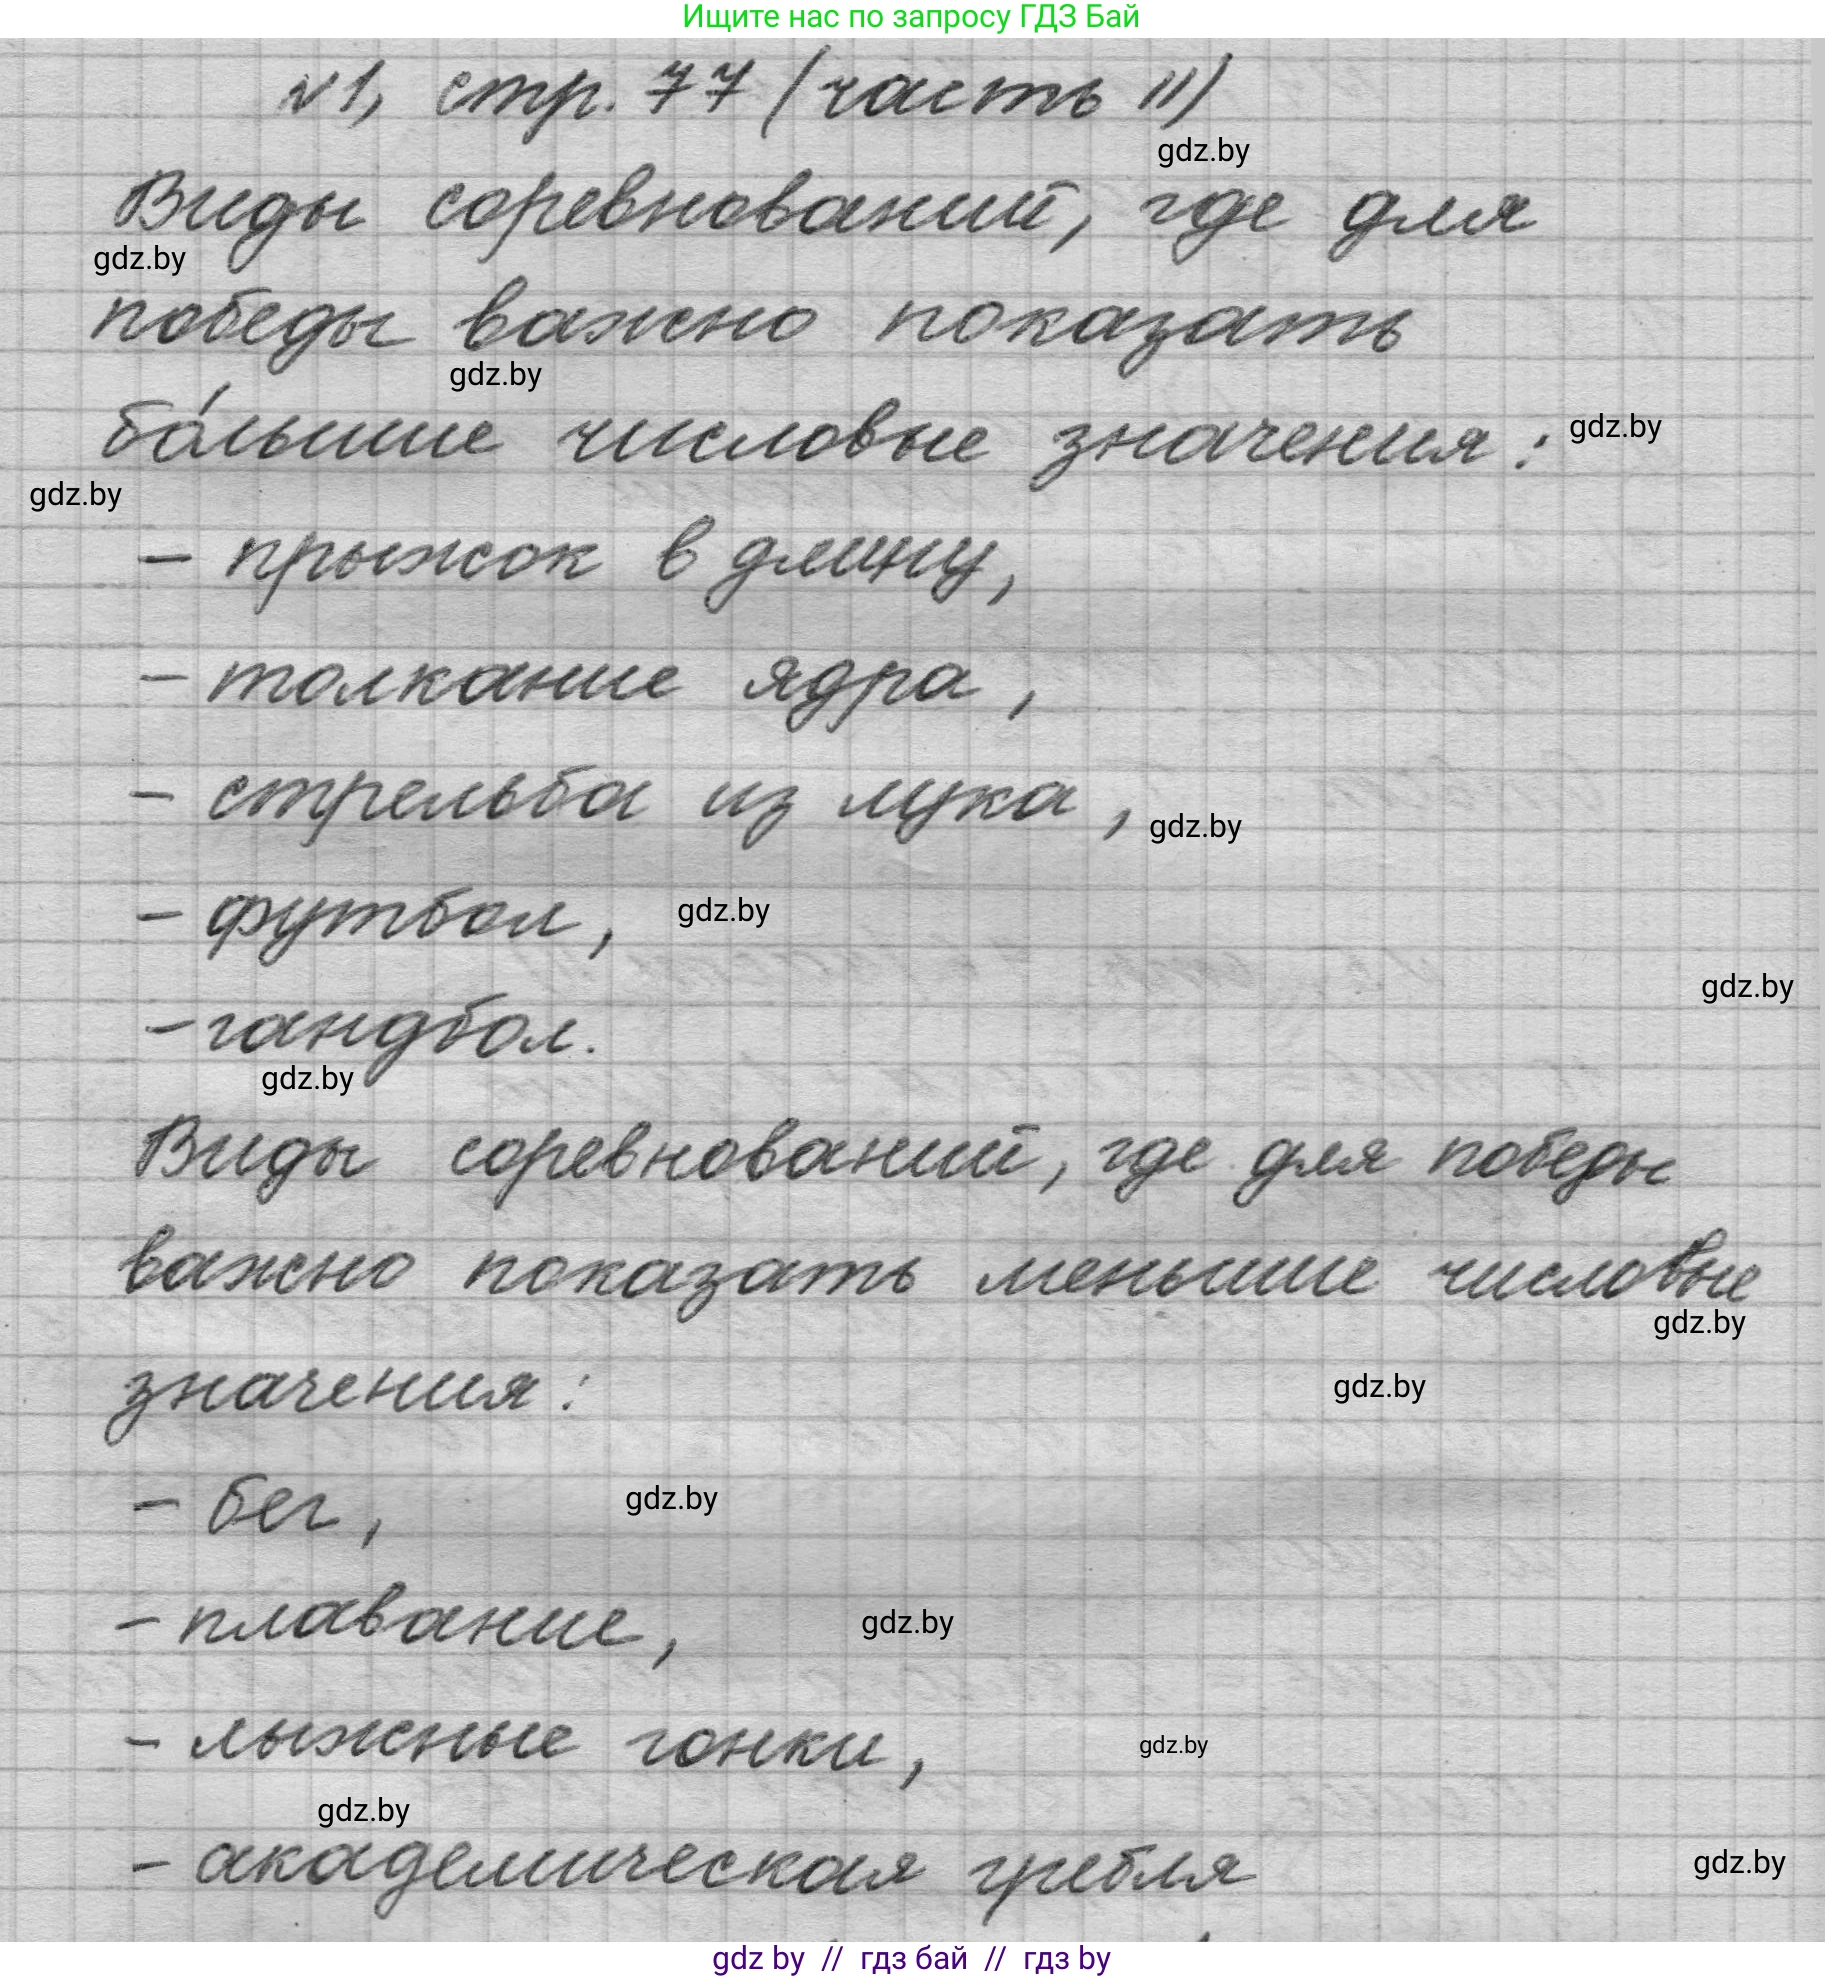 Ищите нас по запросу ГДЗ Бай
№1, стр. 77 (часть II)
gdz.by
Виды соревнований, где для
gdz.by
победы важно показать
gdz.by
бо́льшие числовые значения:
gdz.by
gdz.by
- прыжок в длину,
- толкание ядра,
- стрельба из лука,
gdz.by
- футбол,
gdz.by
gdz.by
- гандбол.
gdz.by
Виды соревнований, где для победы
важно показать меньшие числовые
gdz.by
значения:
gdz.by
- бег,
gdz.by
- плавание,
gdz.by
- лыжные гонки,
gdz.by
gdz.by
- академическая гребля
gdz.by
gdz by // гдз бай // гдз by